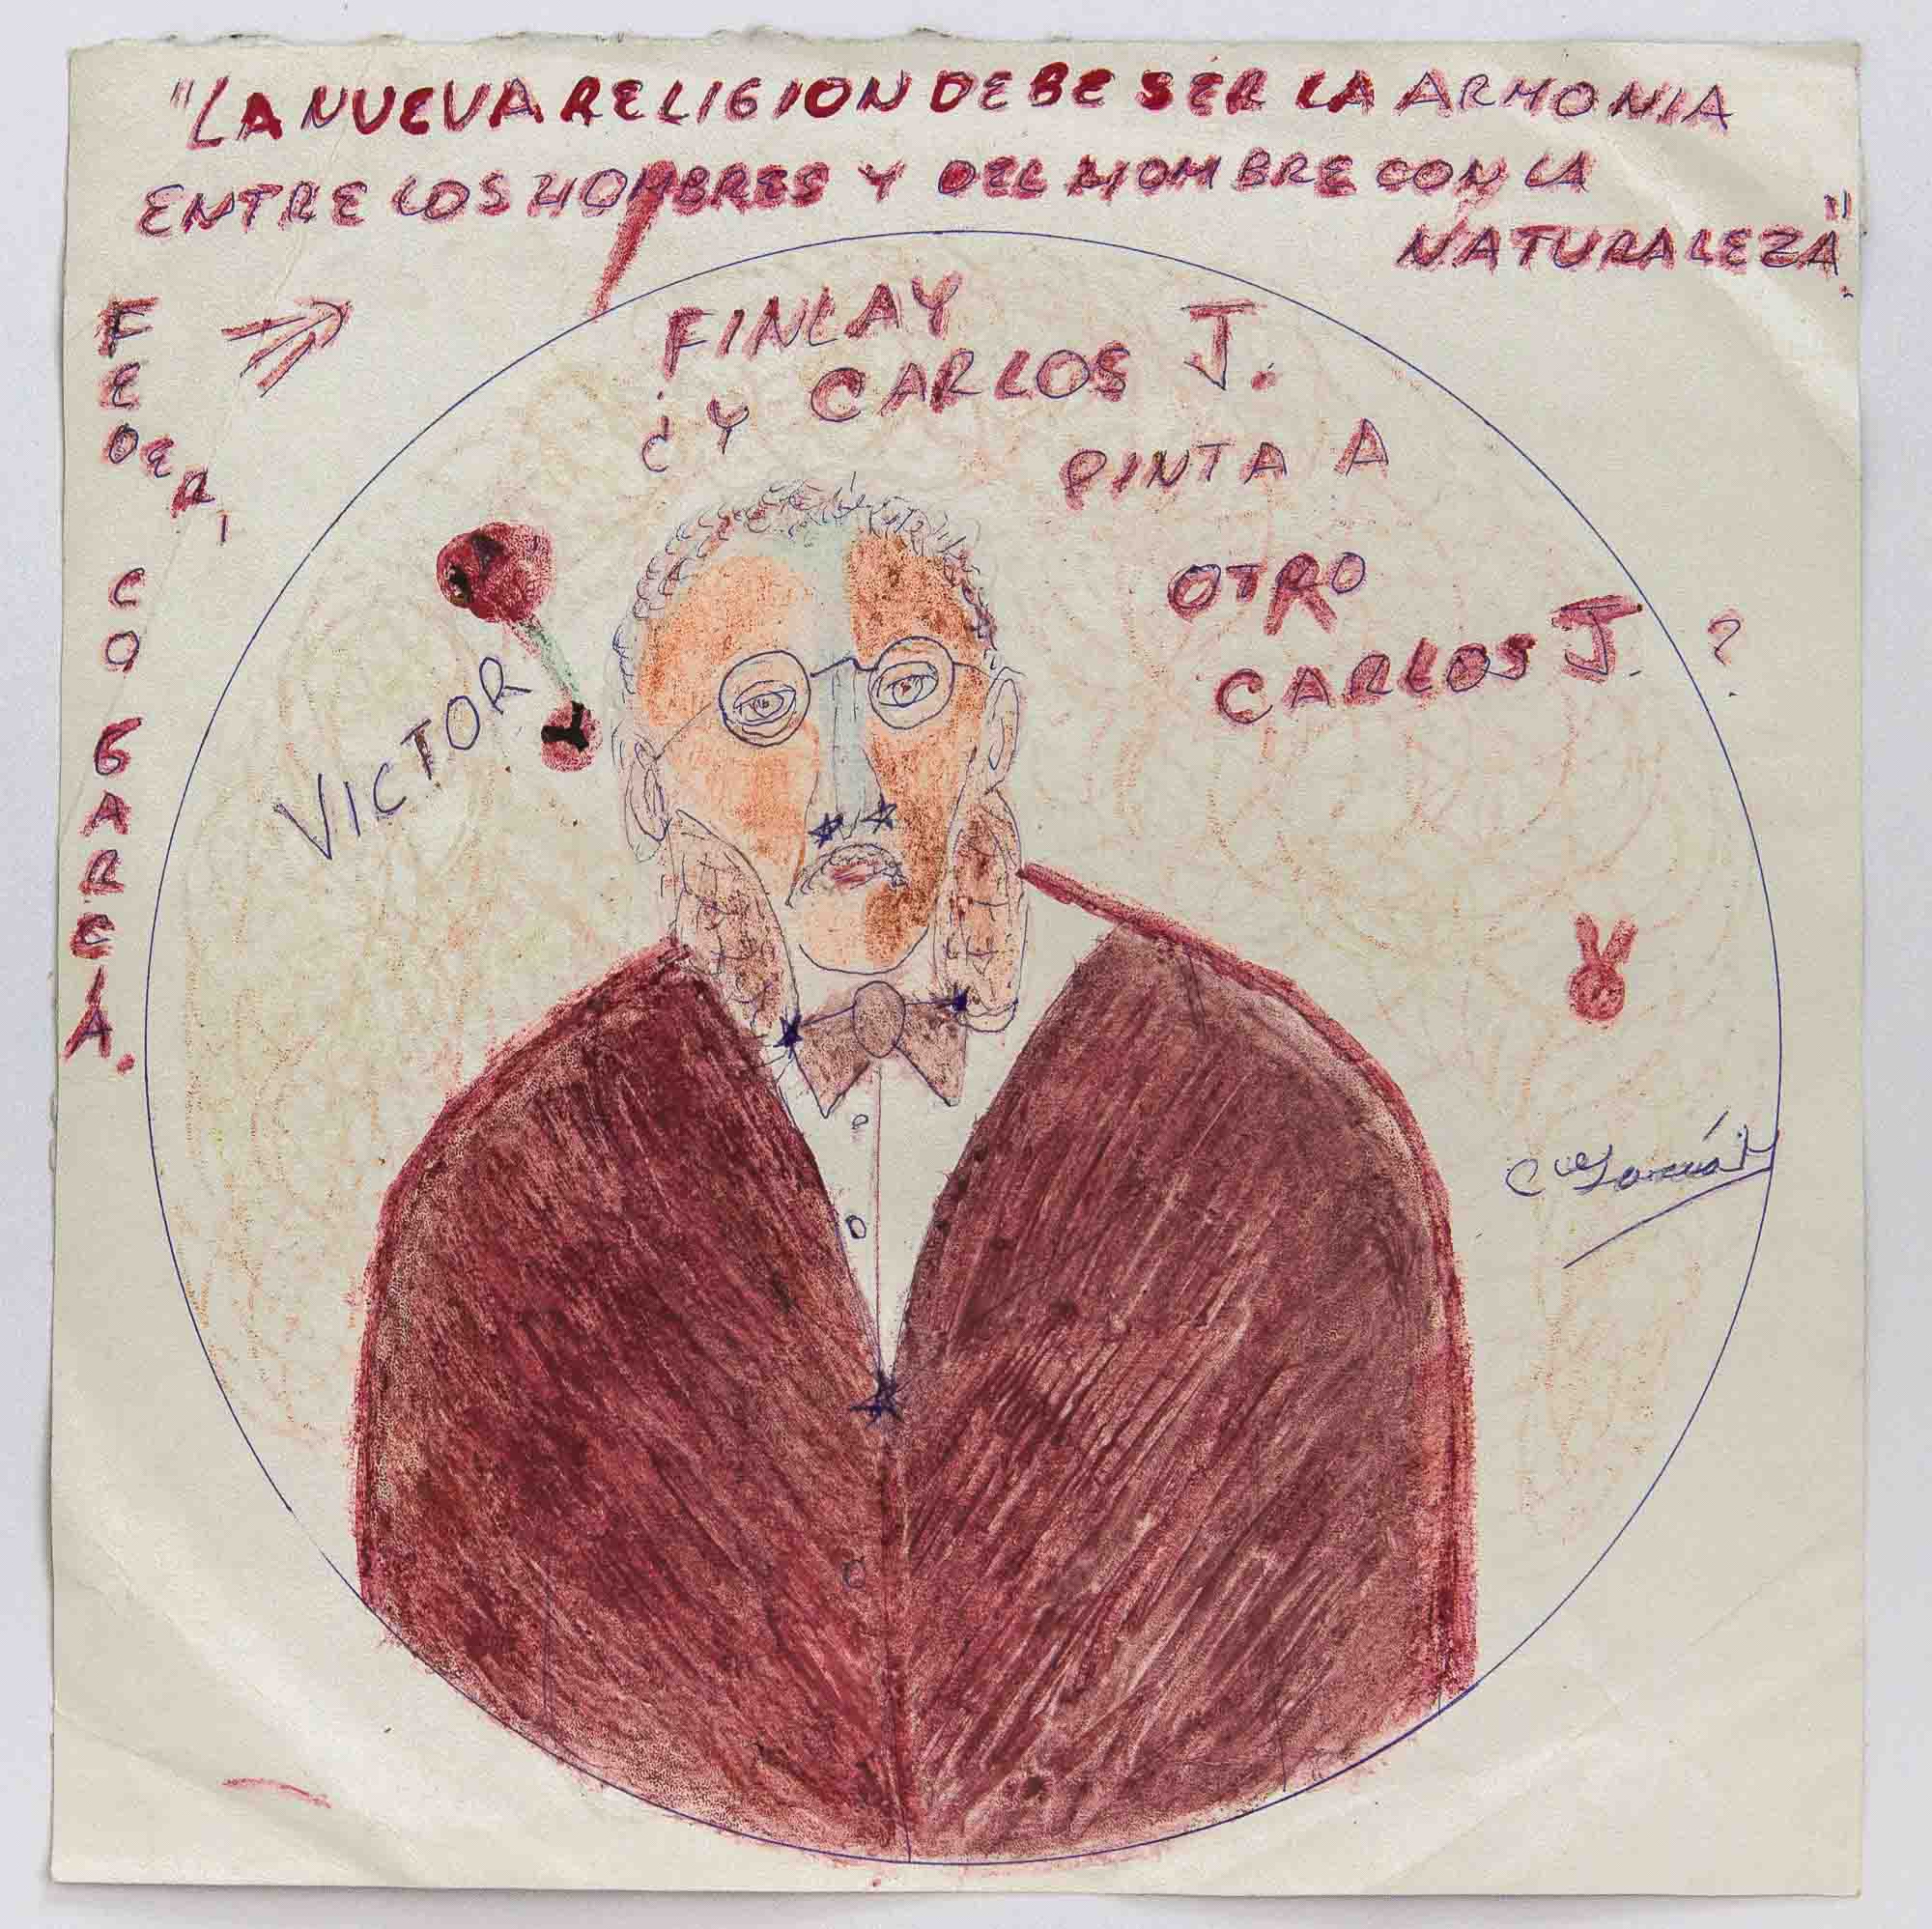 "LA NUEVA RELIGION DEBE SER LA ARMONIA
ENTRE LOS HOMBRES Y DEL HOMBRE CON LA
NATURALEZA".
FEDERICO GARCÍA.
FINLAY
¿Y CARLOS J.
PINTA A
OTRO
CARLOS J. ?
VICTOR